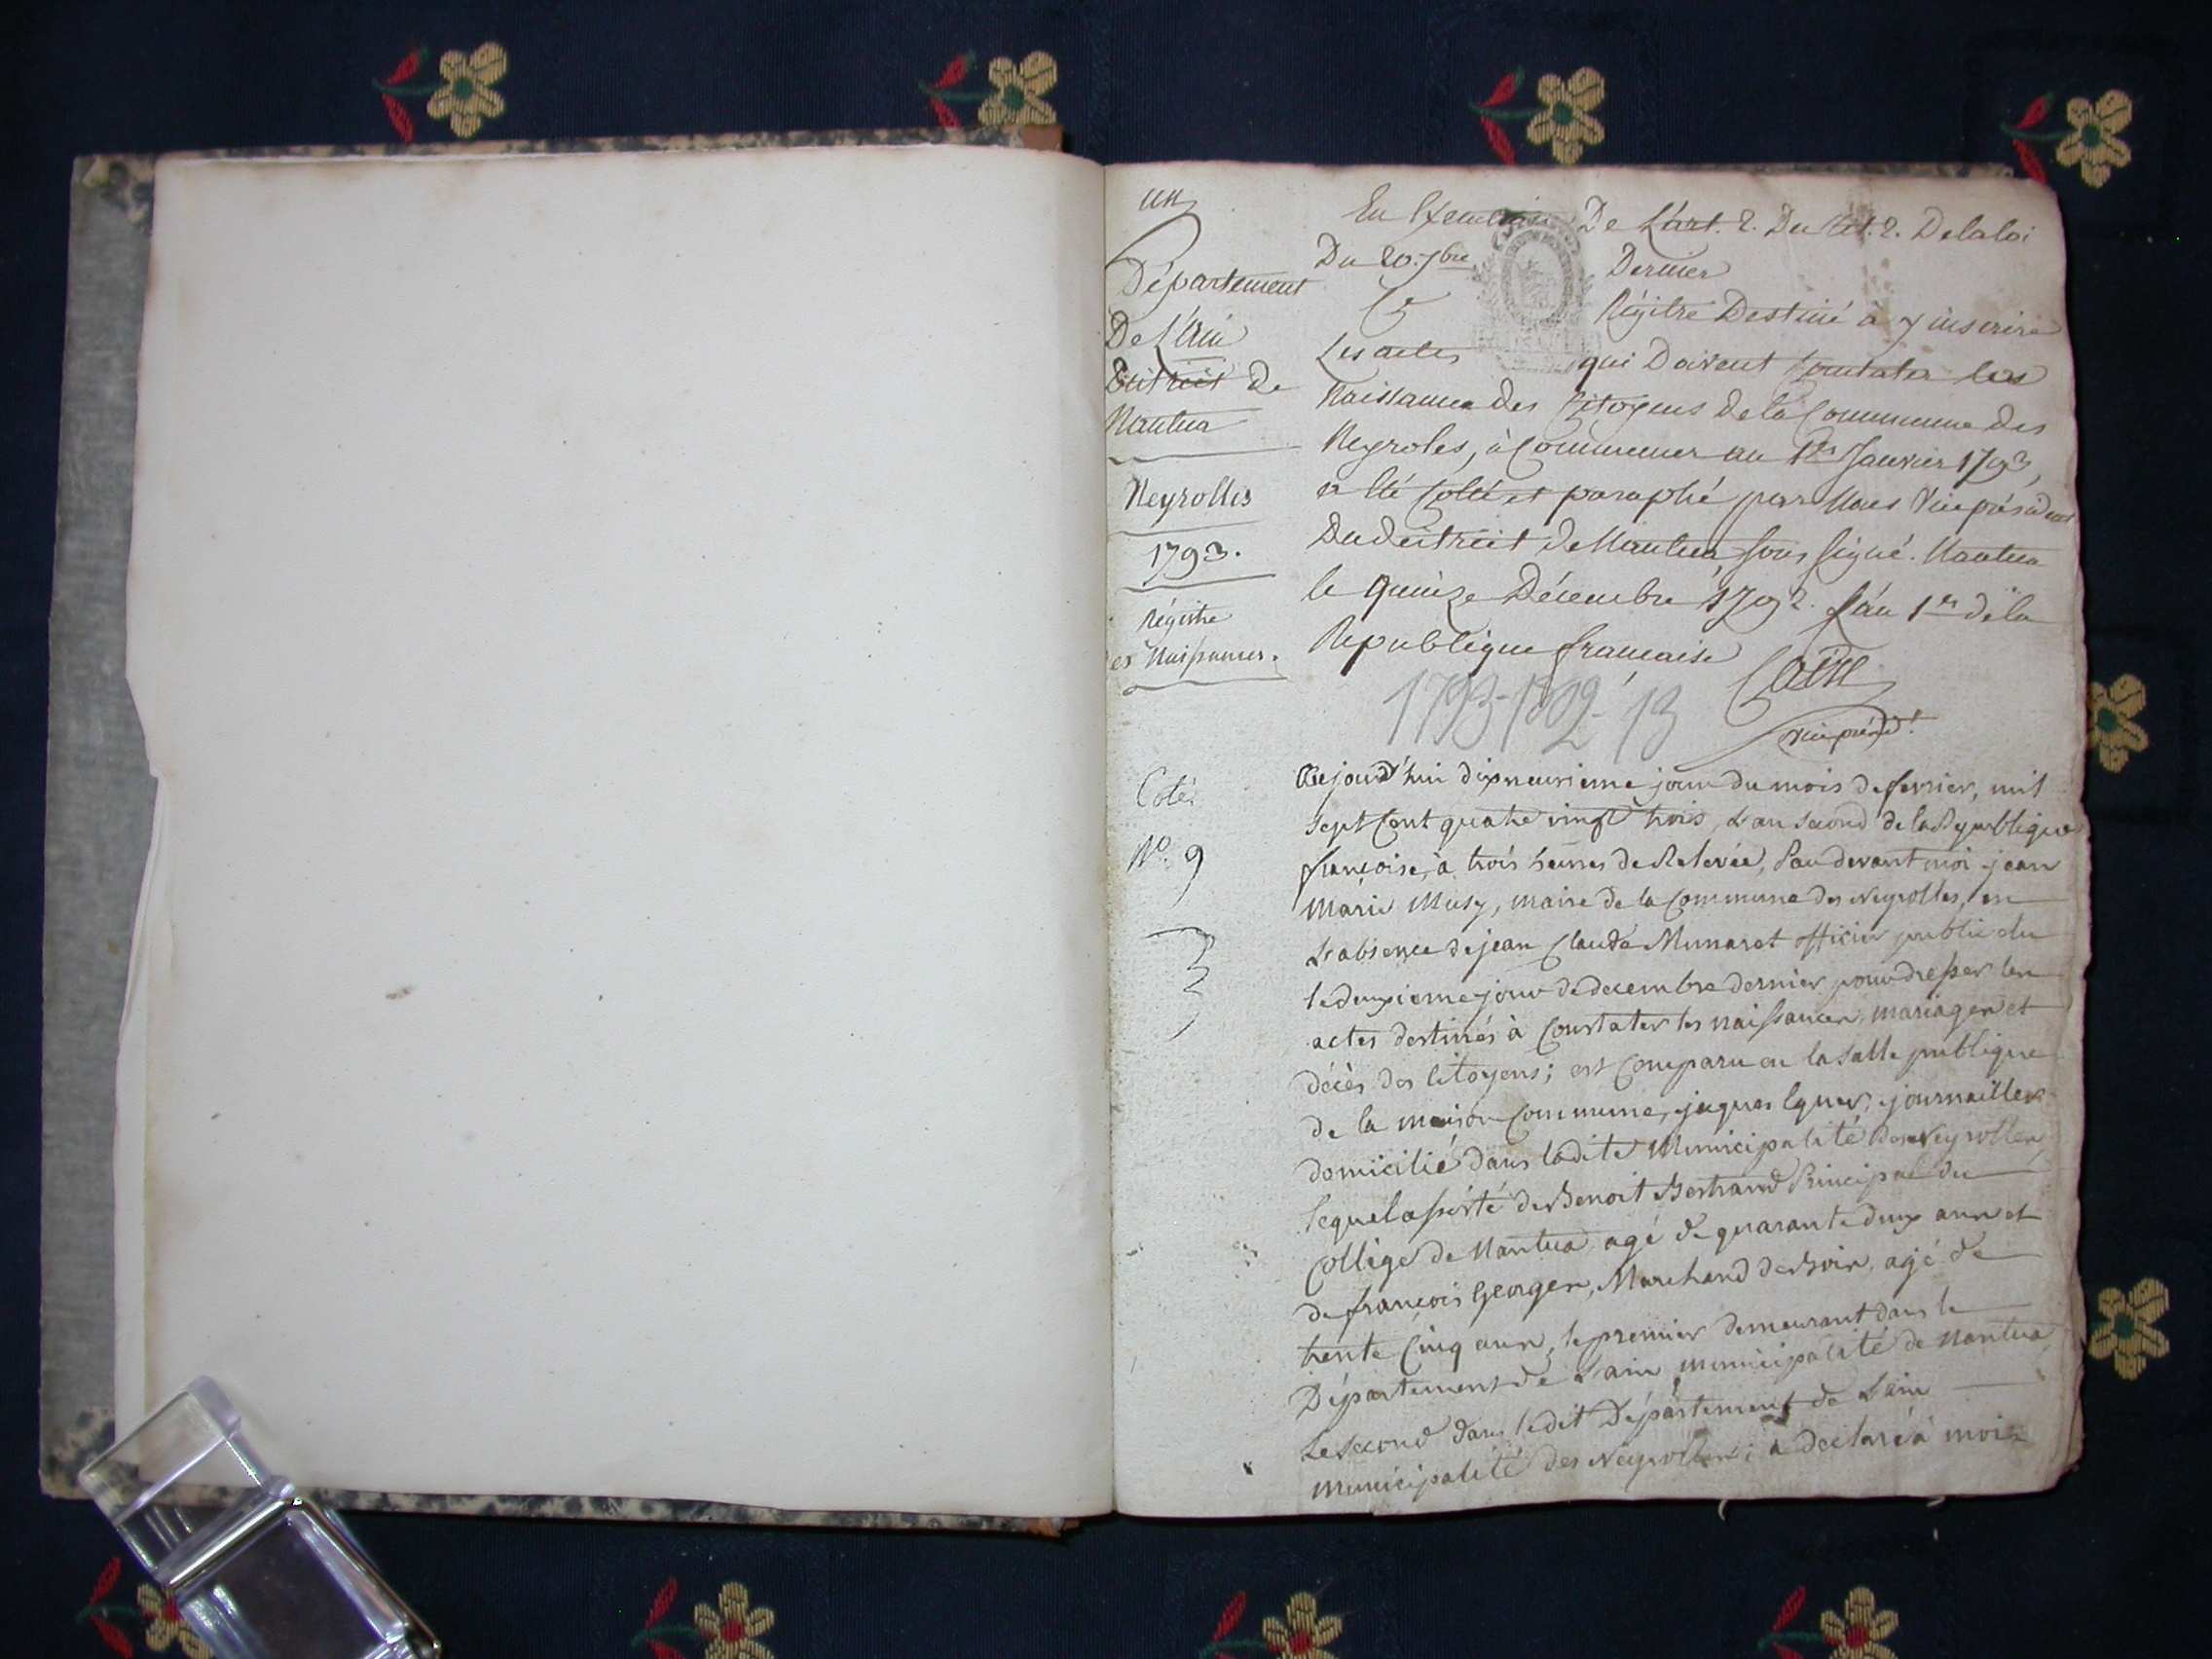 un
Département
De L'Ain
District de
Nantua
Neyrolles
1793.
Régistre
es Naissances.
Coté
N.° 9
En Exécution De L'art. 2. Du tit. 2. De la loi
Du 20. 7bre Dernier
Ce Régistre Destiné à y inscrire
Les actes qui Doivent Constater les
Naissances des Citoyens de la Commune des
Neyroles, à Commencer au 1er Janvier 1793,
a été Coté et paraphé par Nous Vice président
Du district de Nantua, sous signé. Nantua
le quinze Décembre 1792. L'an 1er de la
République française
vice présid.t
1793-1802-13
Aujourd'hui dixneuvieme jour du mois de fevrier, mil
sept Cent quatre vingt trois, L'an second de la Republique
françoise, à trois heures de Relevée, Par devant moi jean
Marie Musy, maire de la Commune des Neyrolles, en
L'absence de jean Claude Munaret officier public elu
le deuxieme jour de decembre dernier pour dresser les
actes destinés à Constater les naissances, mariages et
décès des Citoyens; est Comparu en la salle publique
de la maison Commune, jaques journailler
domicilié dans ladite Municipalité des Neyrolles,
lequel assisté de Benoit Bertrand Principal du
College de Nantua agé de quarante deux ans et
de françois Georges, Marchand de Bois, agé de
trente Cinq ans, le premier demeurant dans le
Département de L'ain municipalité de Nantua
Le second dans ledit Département de L'ain
municipalité des Neyrolles; a declaré à moi